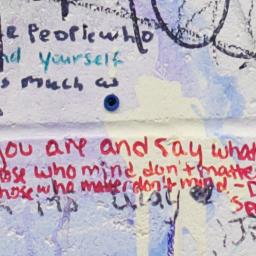 e People who
nd yourself
s much as
you are and say what
ose who mind don't matte
hose who matter don't mind -D
Se